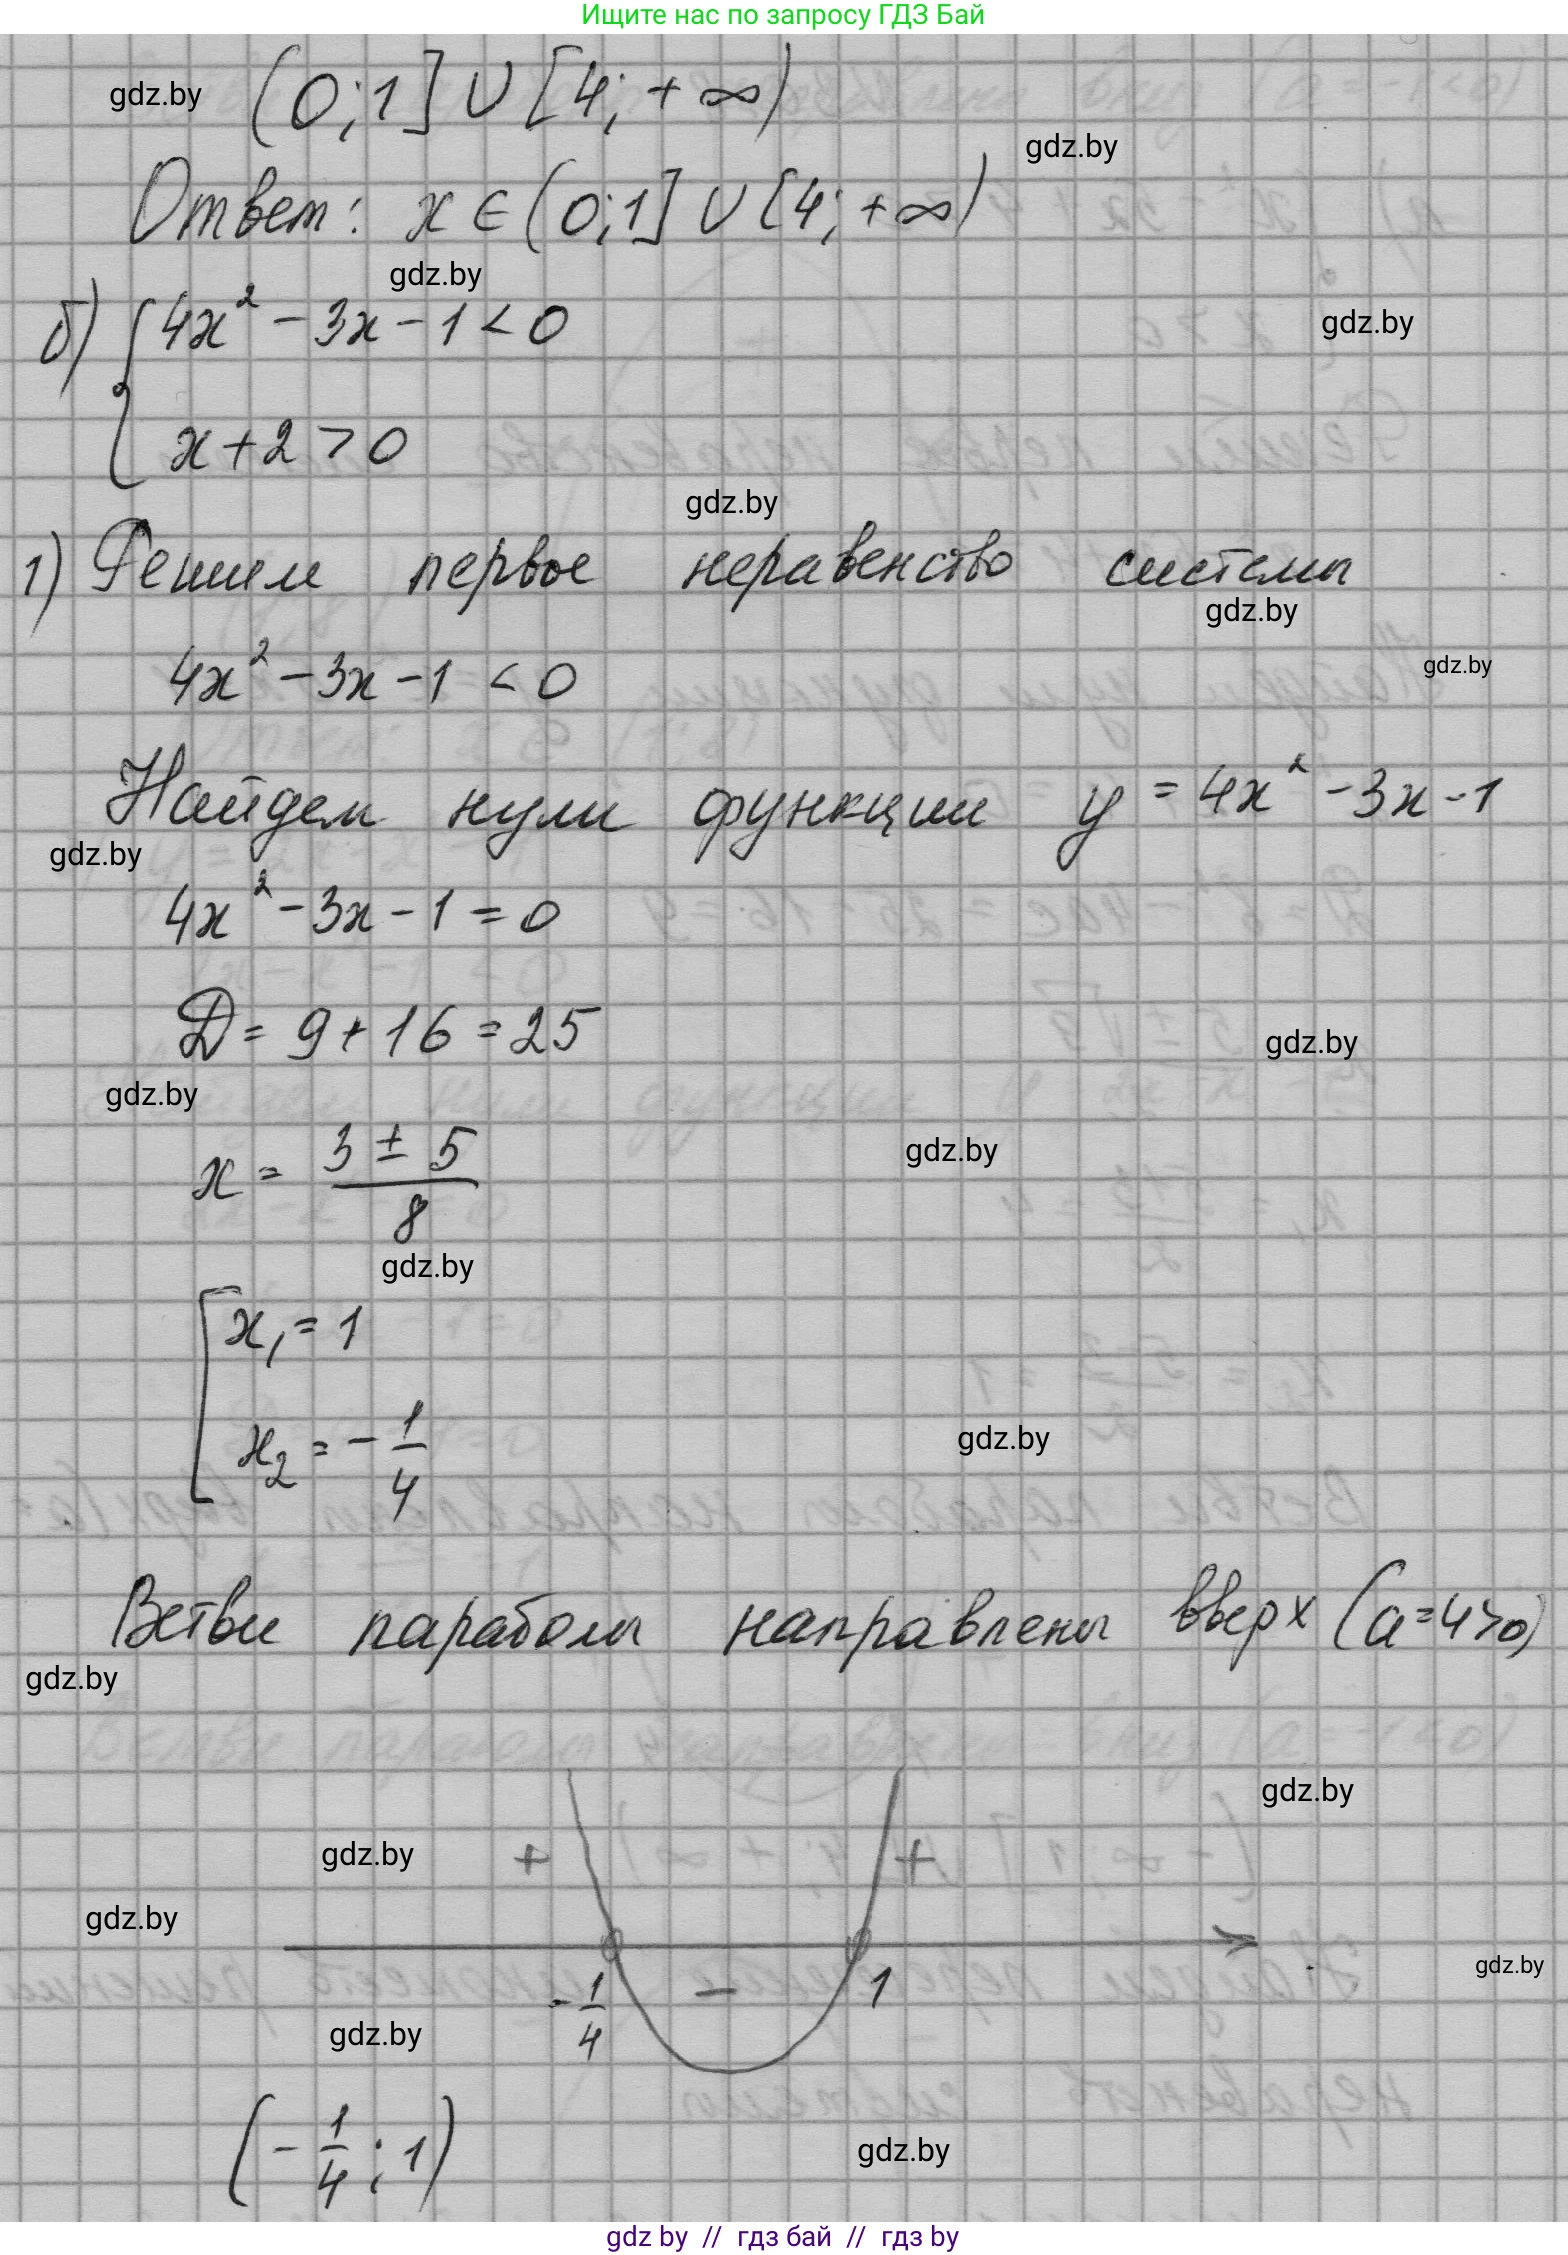 Ищите нас по запросу ГДЗ Бай
(0;1] ∪ [4; +∞)
gdz.by
gdz.by
Ответ: x ∈ (0;1] ∪ [4; +∞)
gdz.by
б) { 4x² - 3x - 1 < 0
gdz.by
x + 2 > 0
gdz.by
1) Решим первое неравенство системы
gdz.by
4x² - 3x - 1 < 0
gdz.by
Найдем нули функции y = 4x² - 3x - 1
gdz.by
4x² - 3x - 1 = 0
D = 9 + 16 = 25
gdz.by
gdz.by
x = (3 ± 5)/8
gdz.by
gdz.by
[ x₁ = 1
x₂ = - 1/4
gdz.by
Ветви параболы направлены вверх (a = 4 > 0)
gdz.by
gdz.by
+ +
gdz.by
gdz.by
-1/4 - 1
gdz.by
gdz.by
(- 1/4 ; 1)
gdz.by
gdz by // гдз бай // гдз by